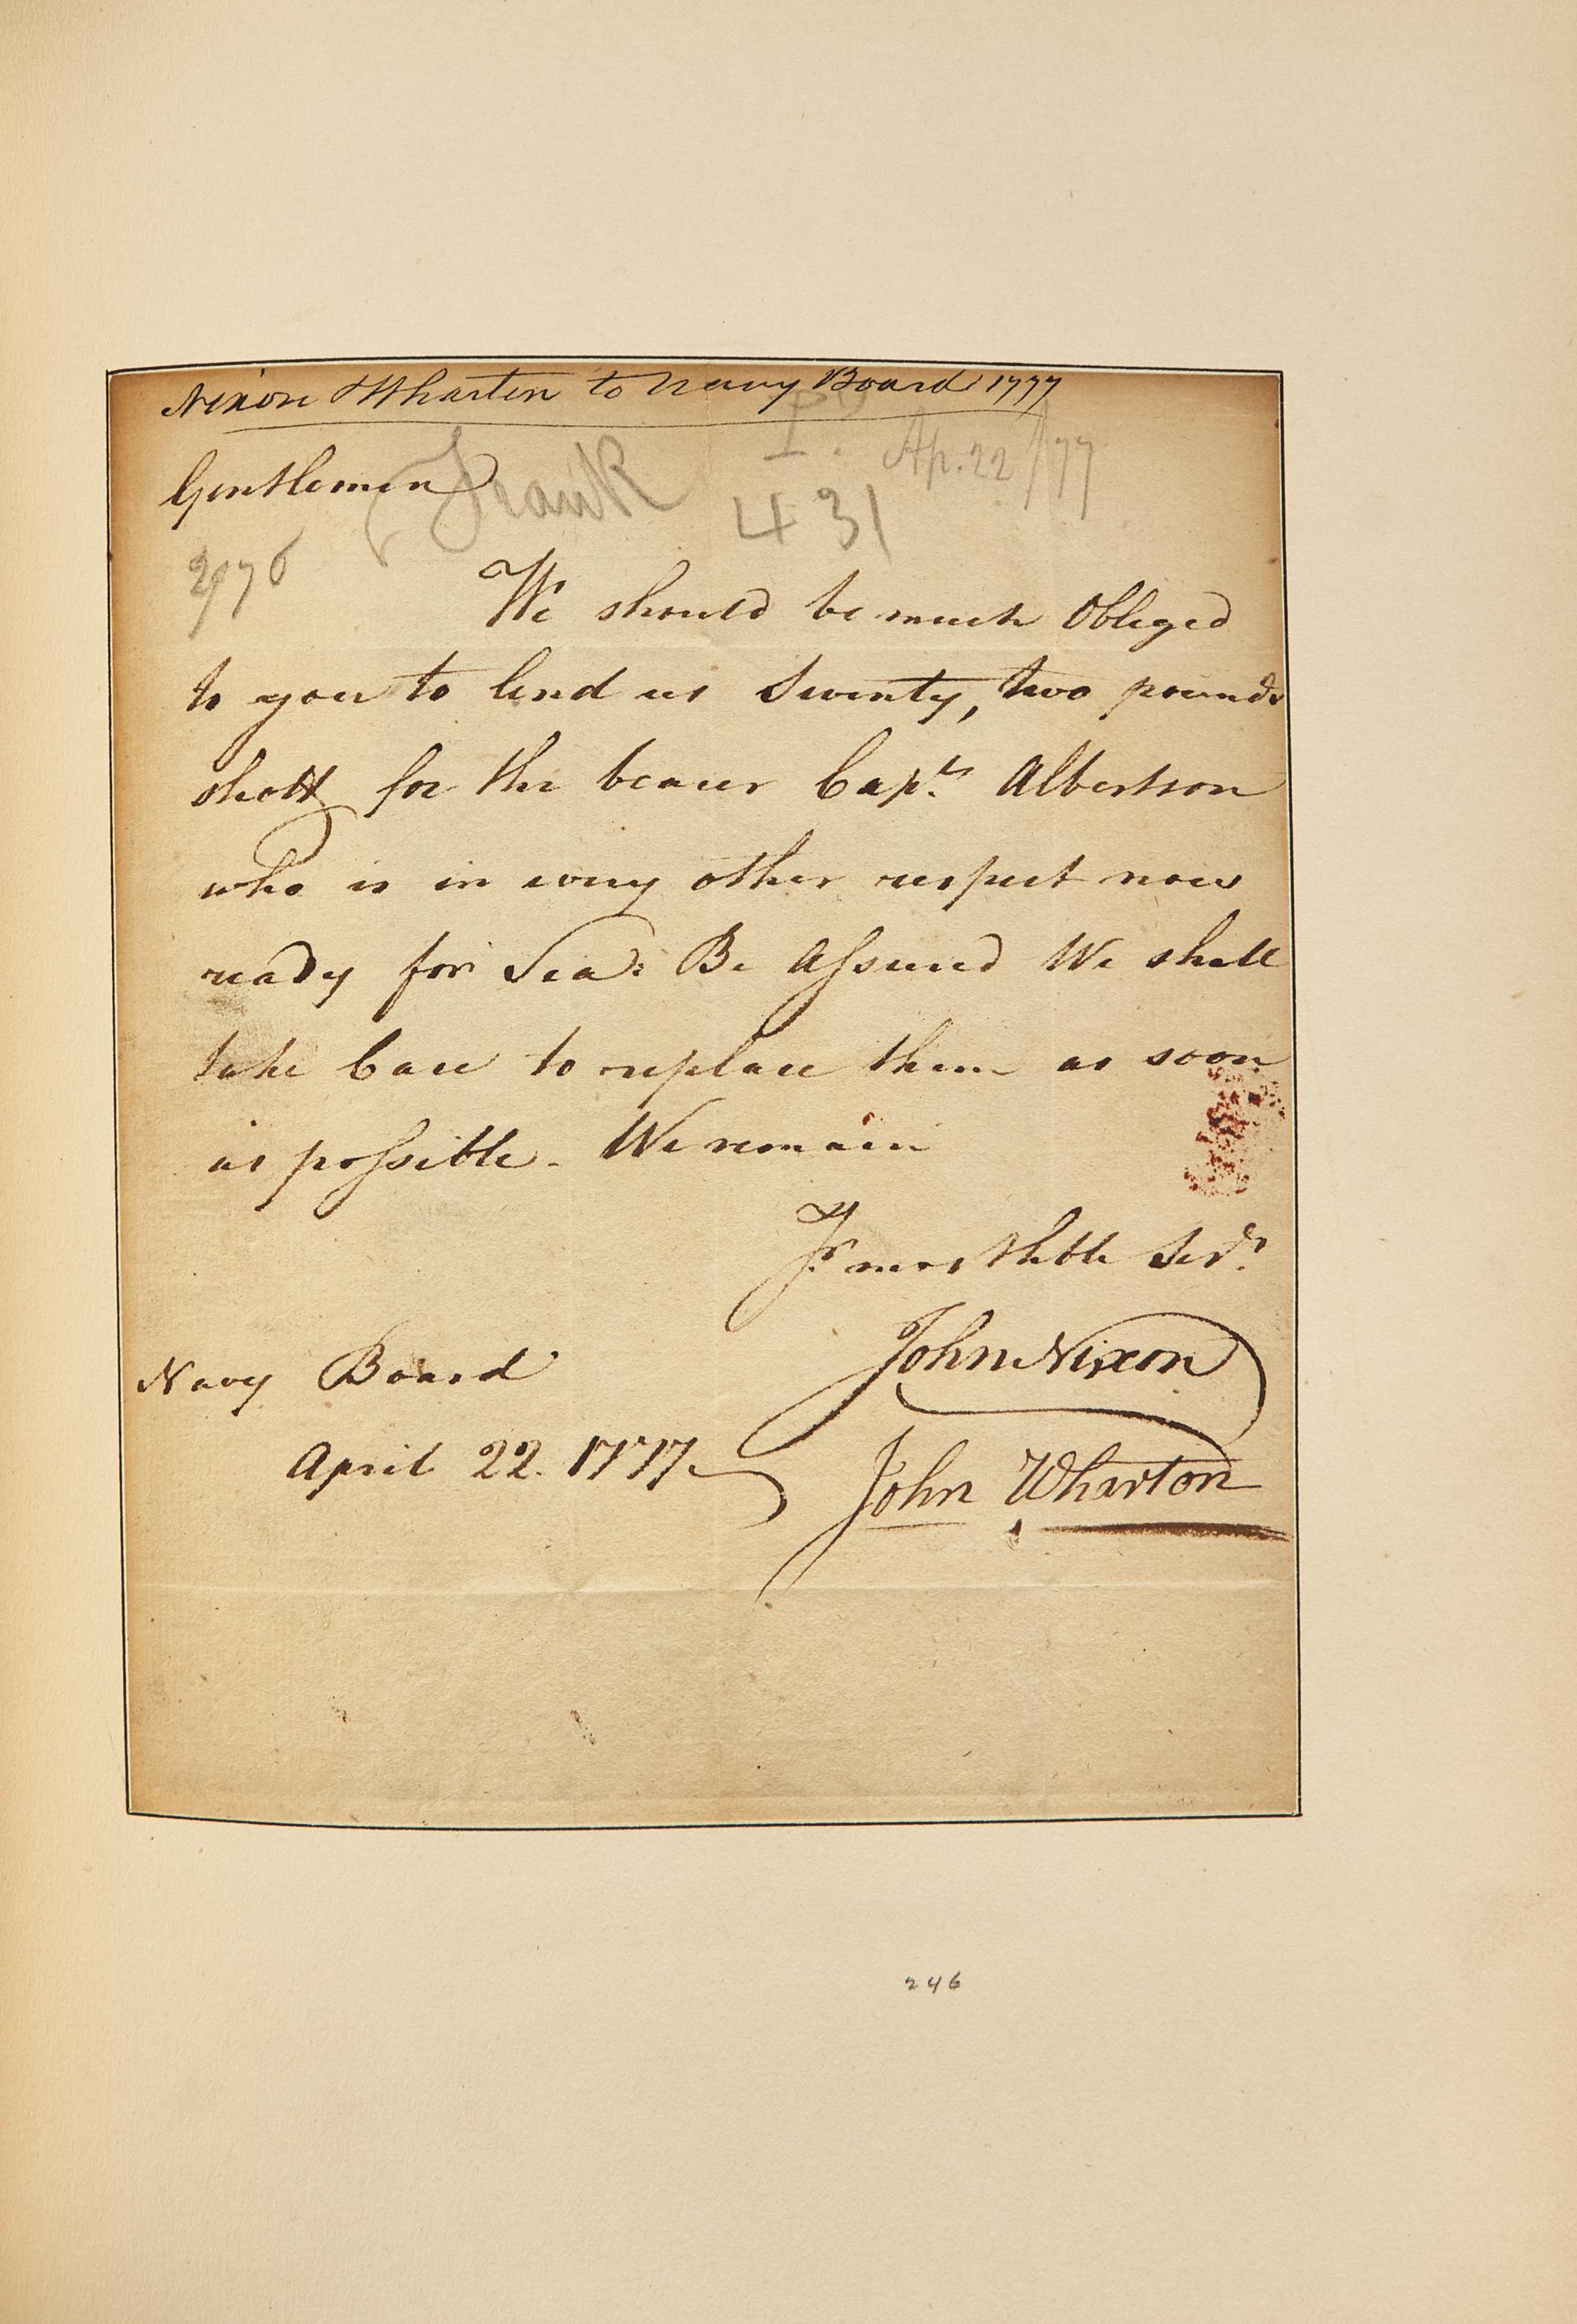 Nixon & Wharton to Navy Board 1777
Ap. 22 / 77
Gentlemen
Frank
431
2976
We should be much Obliged
to you to lend us Twenty, two pounds
shott for the bearer Capt. Albertson
who is in every other respect now
ready for Sea: Be Assured We shall
take Care to replace them as soon
as possible - We remain
Yr. most Hble Servts.
John Nixon
Navy Board
April 22. 1777
John Wharton
246